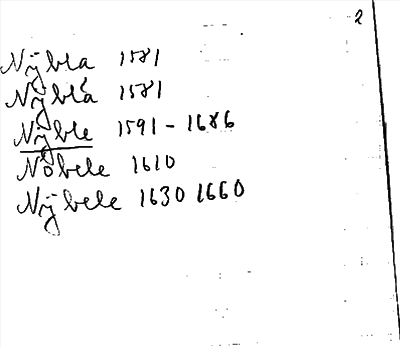 2
Nÿbla 1581
Nÿblá 1581
Nÿble 1591 - 1686
Nöbele 1610
Nÿbele 1630 1660